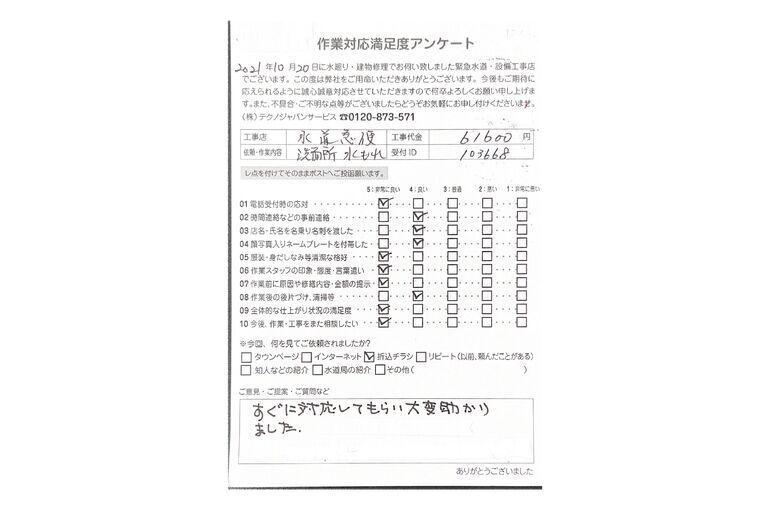 作業対応満足度アンケート
2021年10月20日に水廻り・建物修理でお伺い致しました緊急水道・設備工事店
でございます。この度は弊社をご用命いただきありがとうございます。今後もご期待に
応えられるように誠心誠意対応させていただきますので何卒よろしくお願い申し上げま
す。また、不具合・ご不明な点等がございましたらどうぞお気軽にお申し付けくださいませ。
(株)テクノジャパンサービス ☎0120-873-571
工事店 水道急便 工事代金 61600 円
依頼・作業内容 洗面所 水もれ 受付ID 103668
レ点を付けてそのままポストへご投函願います。
5:非常に良い 4:良い 3:普通 2:悪い 1:非常に悪い
01 電話受付時の応対
02 時間連絡などの事前連絡
03 店名・氏名を名乗り名刺を渡した
04 顔写真入りネームプレートを付帯した
05 服装・身だしなみ等清潔な格好
06 作業スタッフの印象・態度・言葉遣い
07 作業前に原因や修繕内容・金額の提示
08 作業後の後片づけ、清掃等
09 全体的な仕上がり状況の満足度
10 今後、作業・工事をまた相談したい
※今回、何を見てご依頼されましたか?
タウンページ インターネット 折込チラシ リピート(以前、頼んだことがある)
知人などの紹介 水道局の紹介 その他( )
ご意見・ご提案・ご質問など
すぐに対応してもらい大変助かり
ました.
ありがとうございました